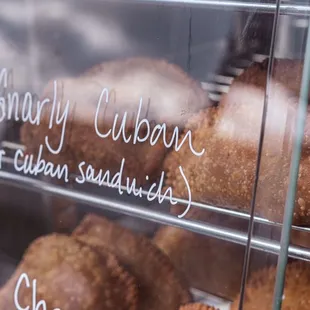 Gnarly Cuban
r cuban sandwich)